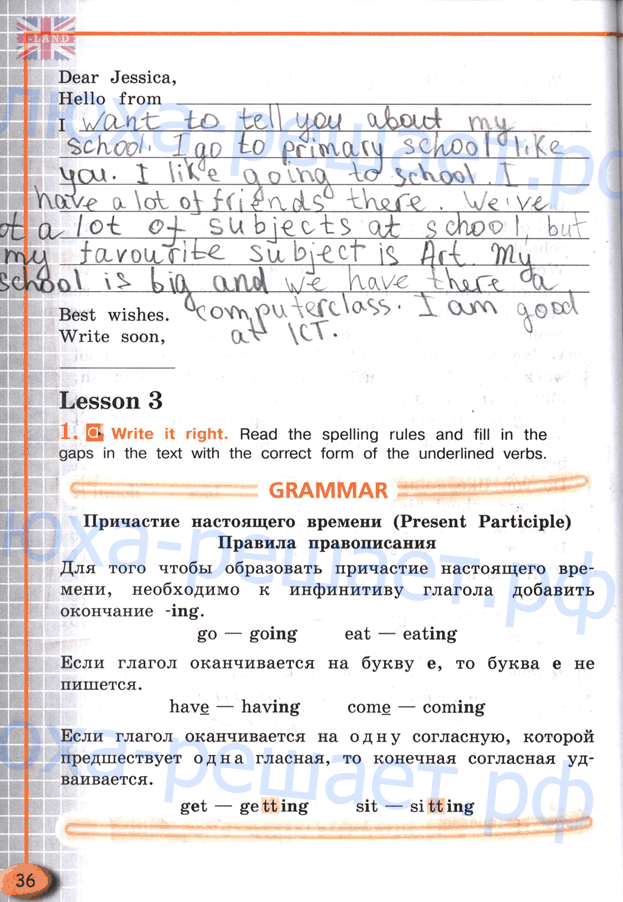 I-LAND
Dear Jessica,
Hello from
I want to tell you about my
school. I go to primary school like
you. I like going to school. I
have a lot of friends there. We've
ot a lot of subjects at school, but
my favourite subject is Art. My
school is big and we have there a
Best wishes. computerclass. I am good
Write soon, at ICT.
Lesson 3
1. a Write it right. Read the spelling rules and fill in the
gaps in the text with the correct form of the underlined verbs.
GRAMMAR
Причастие настоящего времени (Present Participle)
Правила правописания
Для того чтобы образовать причастие настоящего вре-
мени, необходимо к инфинитиву глагола добавить
окончание -ing.
go — going eat — eating
Если глагол оканчивается на букву е, то буква е не
пишется.
have — having come — coming
Если глагол оканчивается на одну согласную, которой
предшествует одна гласная, то конечная согласная уд-
ваивается.
get — getting sit — sitting
36
люха-решает.рф
юха-решает.рф
юха-решает.рф